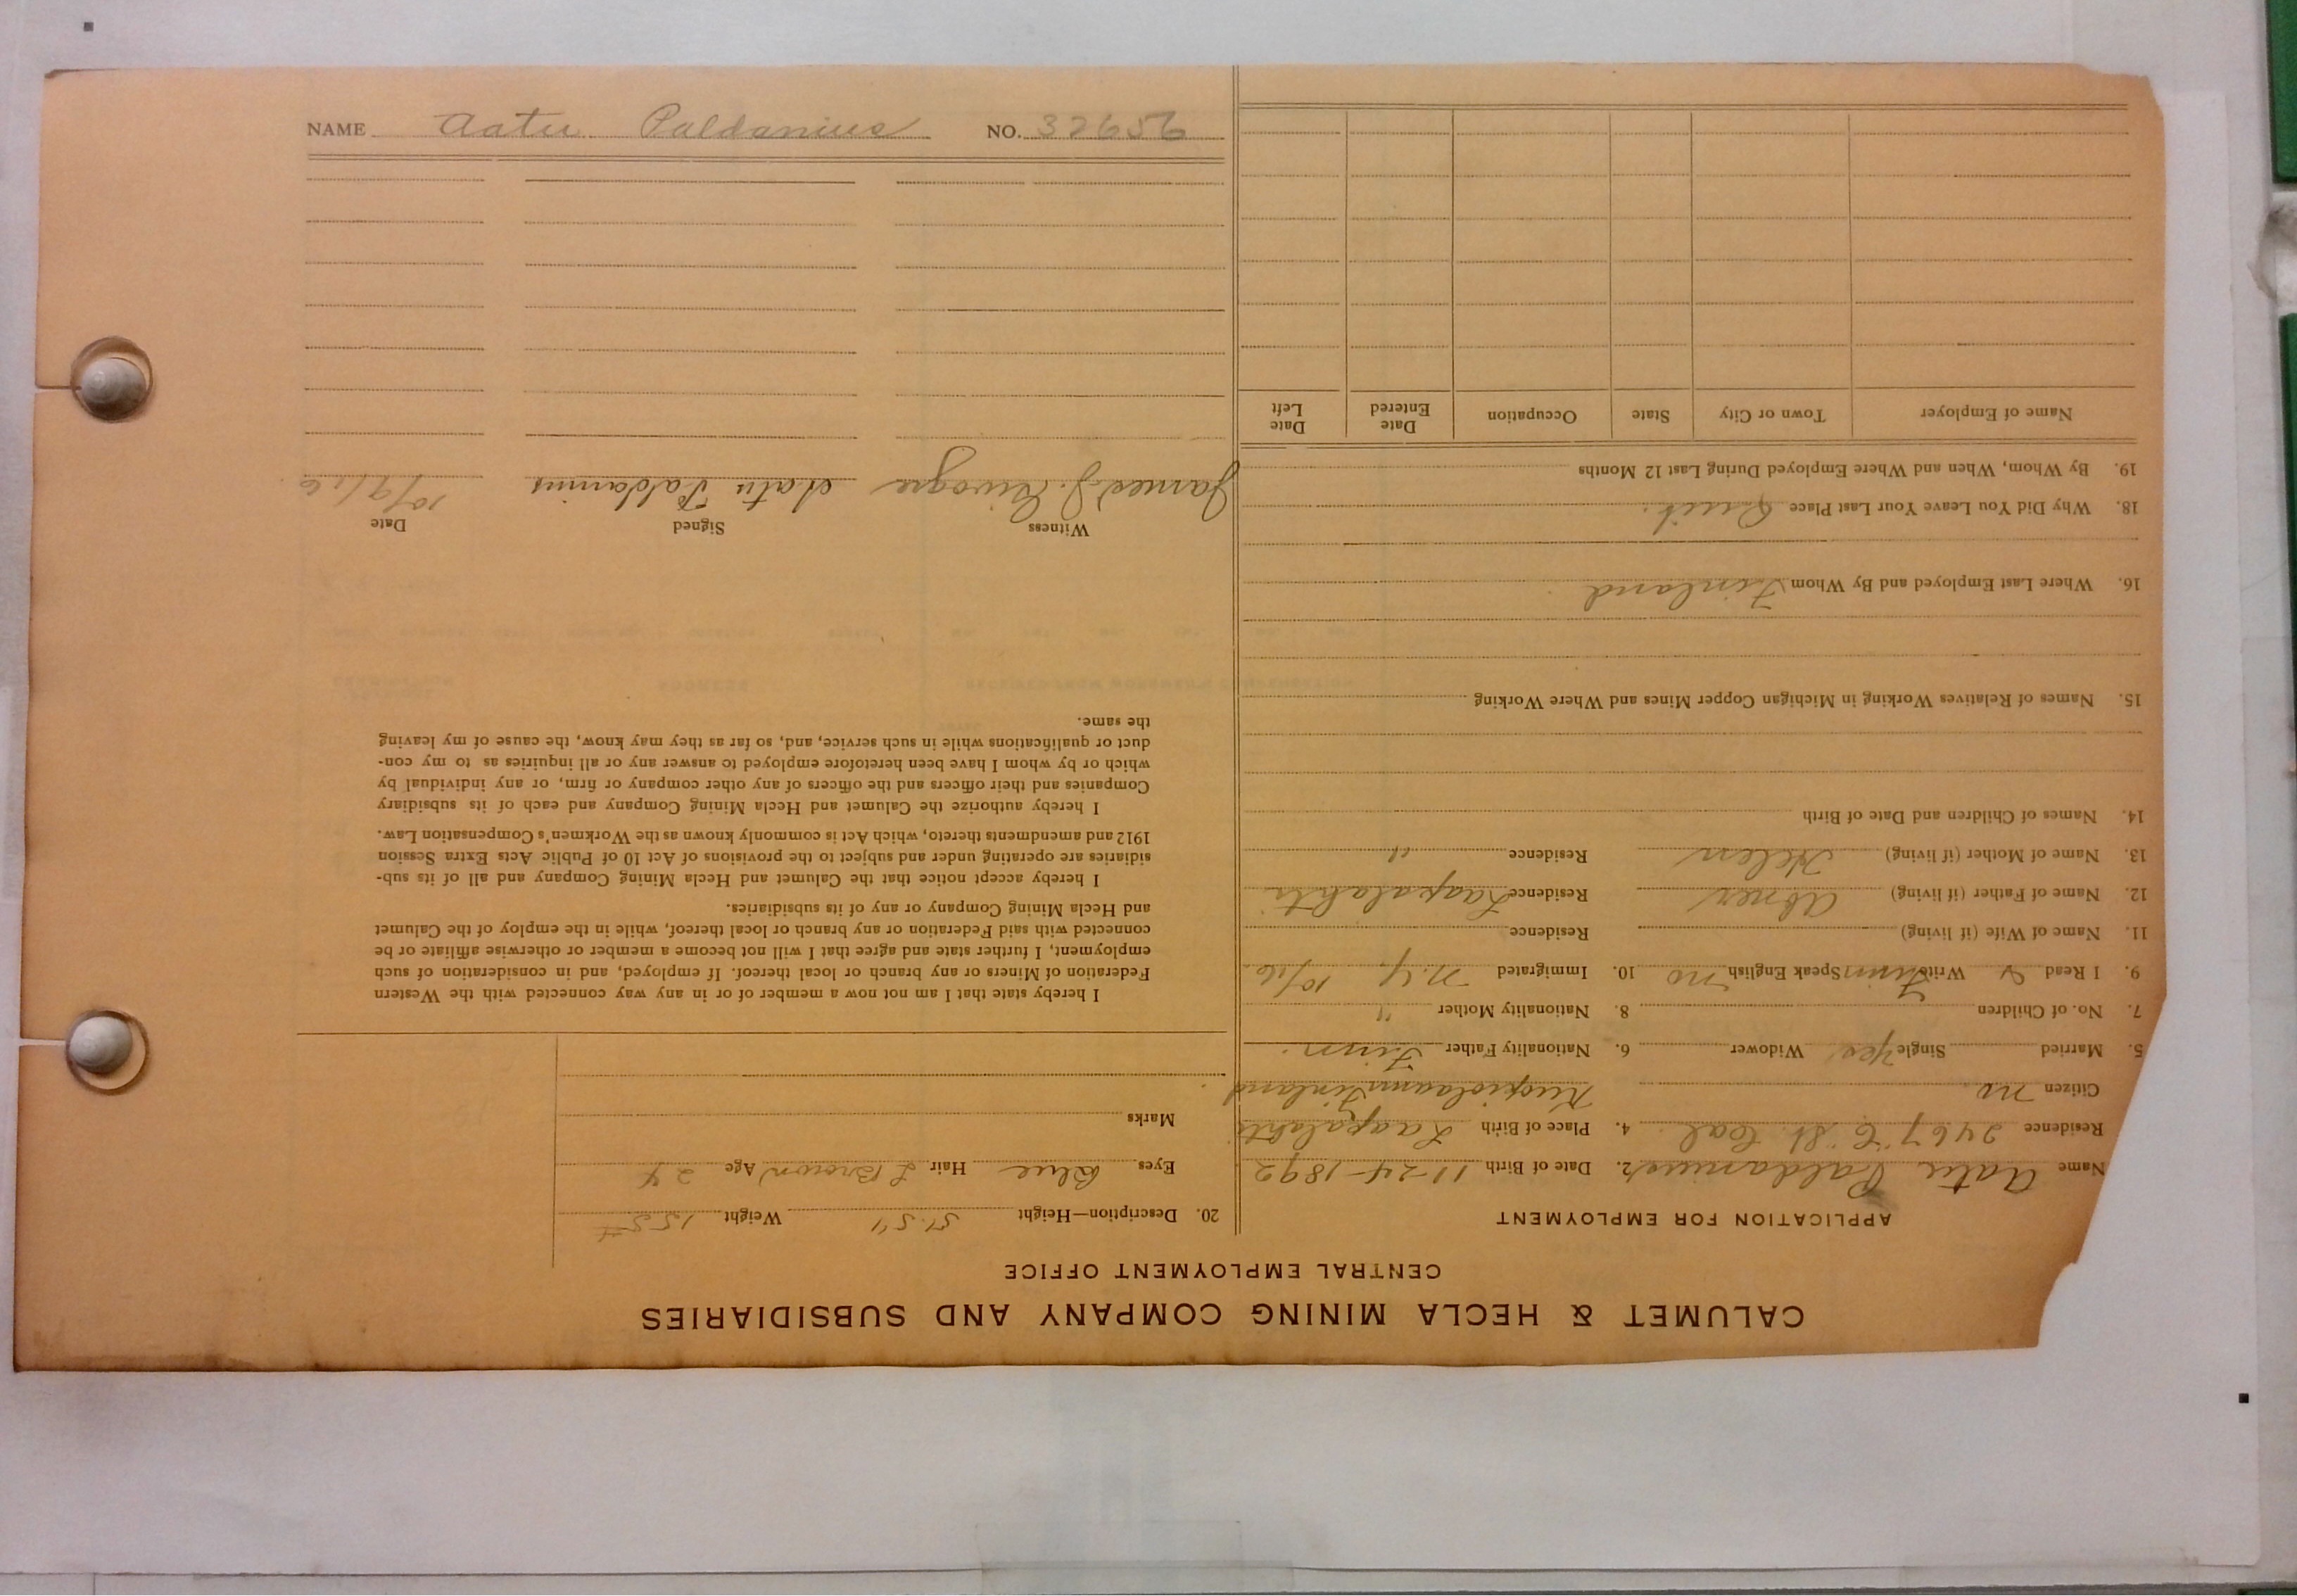 CALUMET & HECLA MINING COMPANY AND SUBSIDIARIES
CENTRAL EMPLOYMENT OFFICE
APPLICATION FOR EMPLOYMENT
Name Aatu Paldanius 2. Date of Birth 11-24-1892
Residence 2467 "C" St. Cal. 4. Place of Birth Laapalahti
Citizen no. Kuopiolaani Finland
5. Married Single Yes Widower 6. Nationality Father Finn.
7. No. of Children 8. Nationality Mother "
9. I Read & Write Finn Speak English no 10. Immigrated N.Y. 10/16.
11. Name of Wife (if living) Residence
12. Name of Father (if living) Abner Residence Laapalahti
13. Name of Mother (if living) Helen Residence "
14. Names of Children and Date of Birth
15. Names of Relatives Working in Michigan Copper Mines and Where Working
16. Where Last Employed and By Whom Finland
18. Why Did You Leave Your Last Place Quit.
19. By Whom, When and Where Employed During Last 12 Months
Name of Employer Town or City State Occupation Date Entered Date Left
20. Description—Height 5'.5" Weight 155#
Eyes Blue Hair L Brown Age 24
Marks
I hereby state that I am not now a member of or in any way connected with the Western
Federation of Miners or any branch or local thereof. If employed, and in consideration of such
employment, I further state and agree that I will not become a member or otherwise affiliate or be
connected with said Federation or any branch or local thereof, while in the employ of the Calumet
and Hecla Mining Company or any of its subsidiaries.
I hereby accept notice that the Calumet and Hecla Mining Company and all of its sub-
sidiaries are operating under and subject to the provisions of Act 10 of Public Acts Extra Session
1912 and amendments thereto, which Act is commonly known as the Workmen's Compensation Law.
I hereby authorize the Calumet and Hecla Mining Company and each of its subsidiary
Companies and their officers and the officers of any other company or firm, or any individual by
which or by whom I have been heretofore employed to answer any or all inquiries as to my con-
duct or qualifications while in such service, and, so far as they may know, the cause of my leaving
the same.
Witness Signed Date
James J. Aatu Paldanius 10/9/16.
NAME Aatu Paldanius NO. 32656